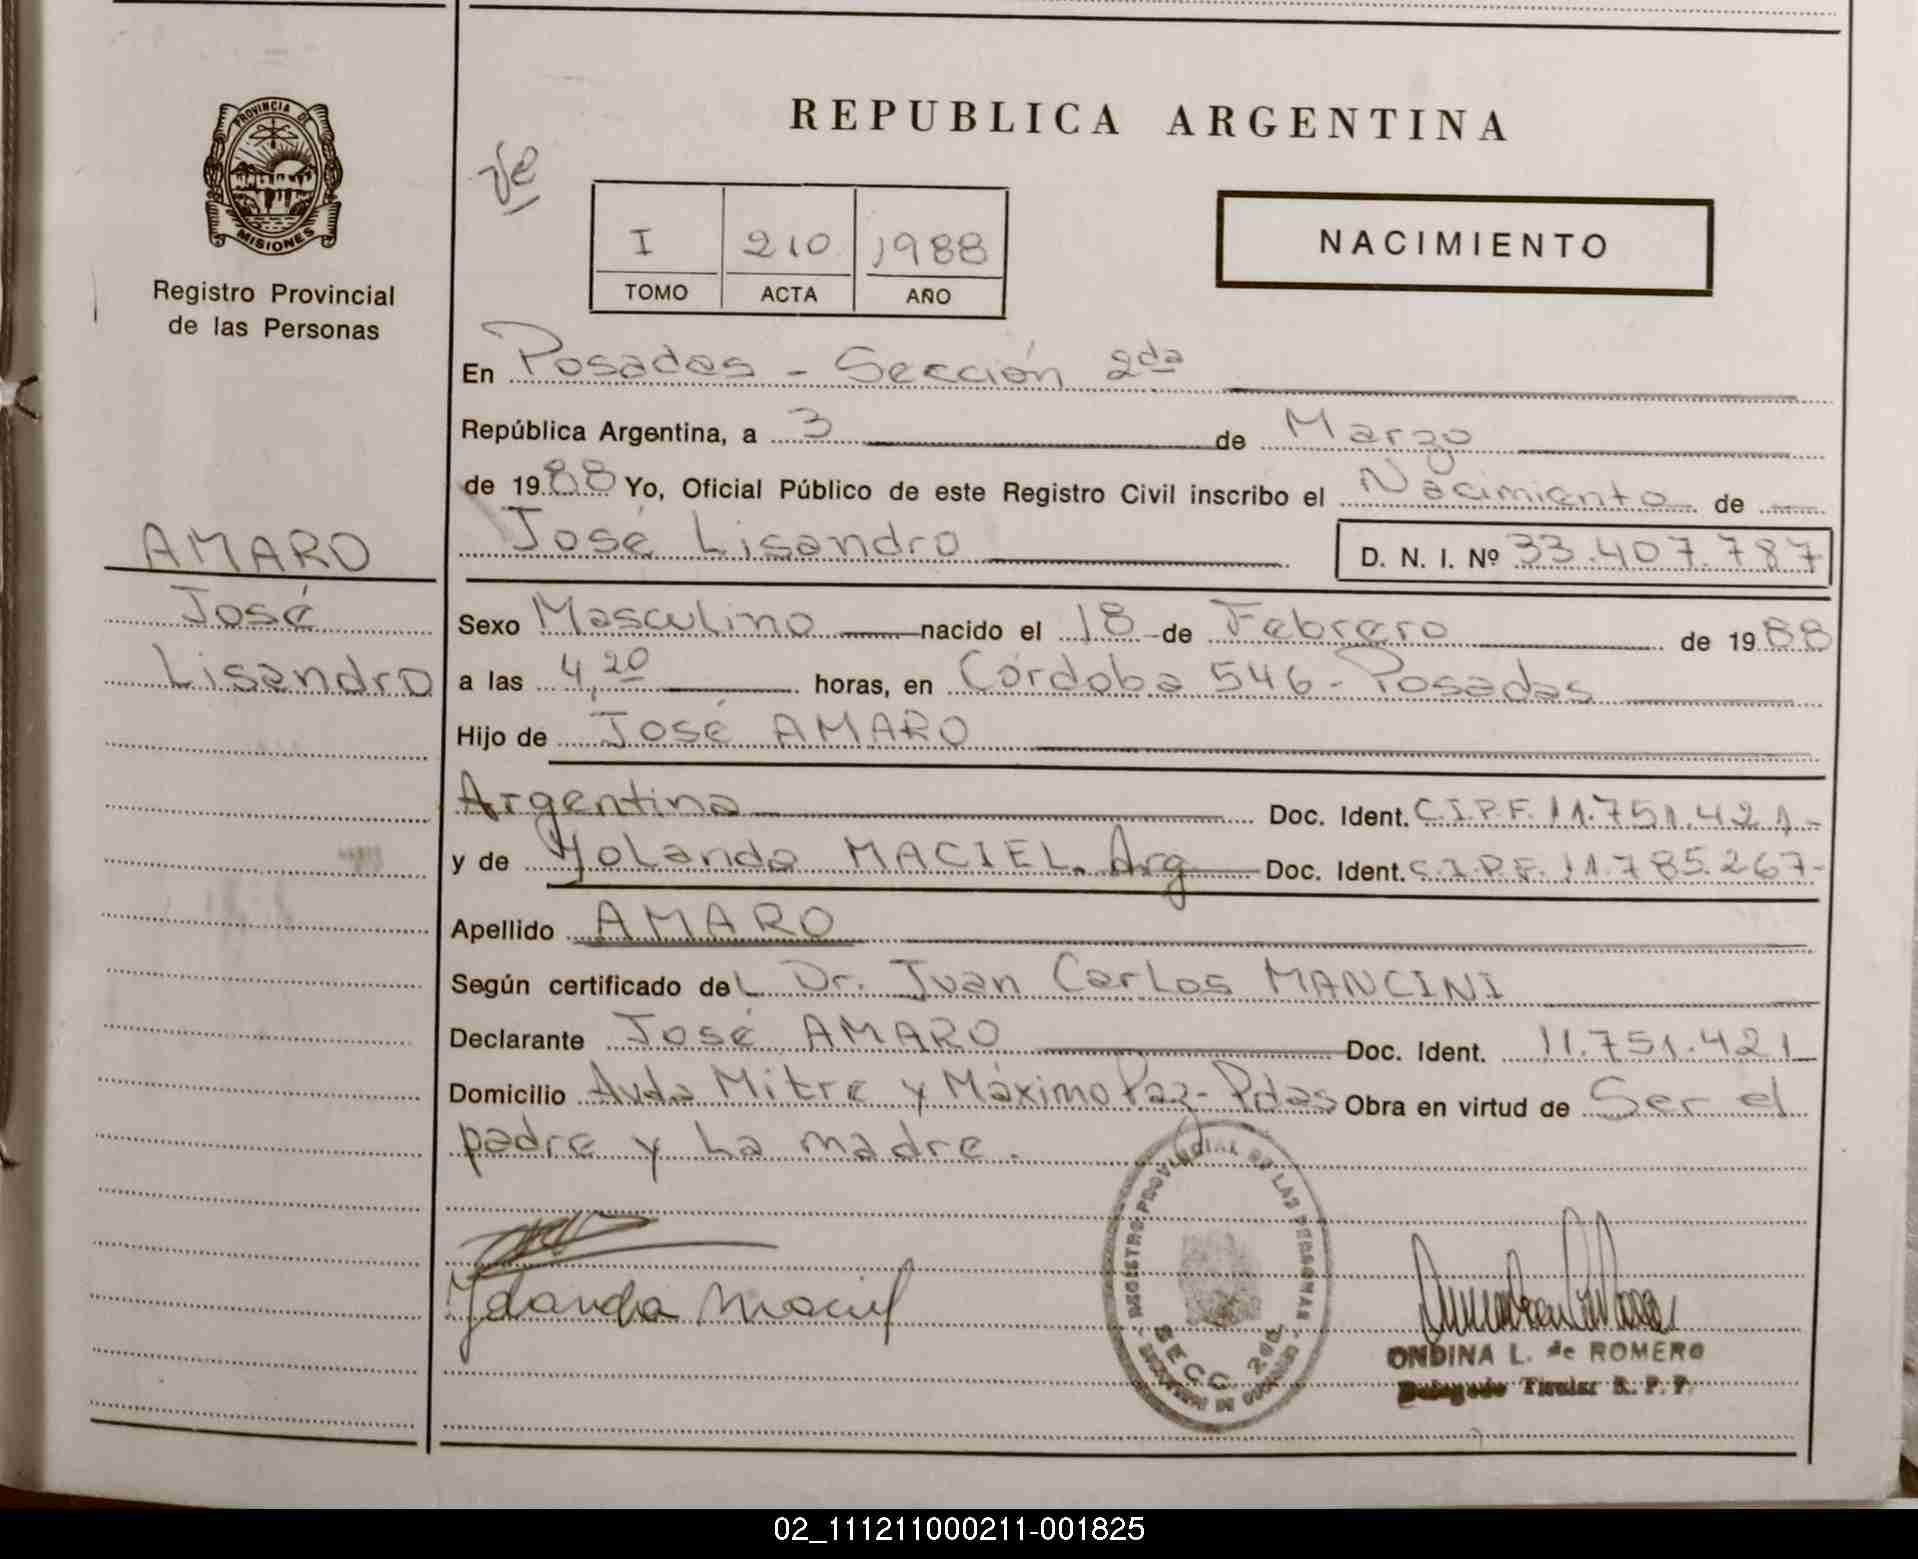 REPUBLICA ARGENTINA
PROVINCIA DE
MISIONES
Registro Provincial
de las Personas
I 210 1988
TOMO ACTA AÑO
NACIMIENTO
En Posadas - Sección 2da
República Argentina, a 3 de Marzo
de 1988 Yo, Oficial Público de este Registro Civil inscribo el Nacimiento de
AMARO
José
Lisandro
José Lisandro D. N. I. Nº 33.407.787
Sexo Masculino nacido el 18 de Febrero de 1988
a las 4,20 horas, en Córdoba 546 - Posadas
Hijo de José AMARO
Argentina Doc. Ident. C.I.P.F. 11.751.421-
y de Yolanda MACIEL. Arg Doc. Ident. C.I.P.F. 11.785.267-
Apellido AMARO
Según certificado deL Dr. Juan Carlos MANCINI
Declarante José AMARO Doc. Ident. 11.751.421
Domicilio Avda Mitre y Máximo Paz - Pdas Obra en virtud de Ser el
padre y La madre.
REGISTRO PROVINCIAL DE LAS PERSONAS
SECC. 2da
Yolanda Maciel
ONDINA L. de ROMERO
Delegado Titular R. P. P.
02_111211000211-001825